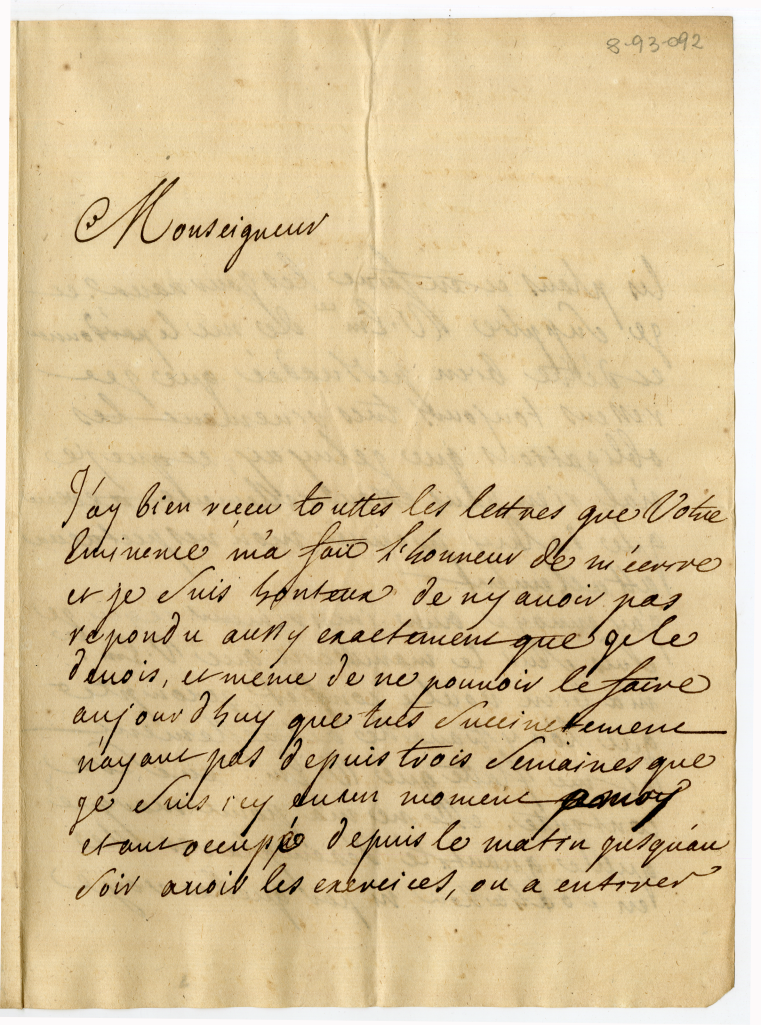 8-93-092
Monseigneur
J'ay bien receu touttes les lettres que Votre
Eminence m'a fait l'honneur de m'ecrire
et je suis honteux de n'y avoir pas
repondu aussy exactement que je le
devois, et même de ne pouvoir le faire
aujourdhuy que tres succinctement
n'ayant pas depuis trois semaines que
je suis icy aucun moment a moy
etant occupé depuis le matin jusqu'au
soir a voir les exercices, ou a entrer